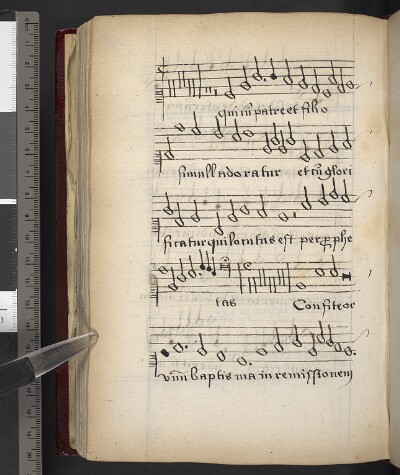 qui cū patre et filio
simull adoratur et cū glori
ficatur qui locutus est per prophe
tas Confiteor
vnū baptisma in remissionem